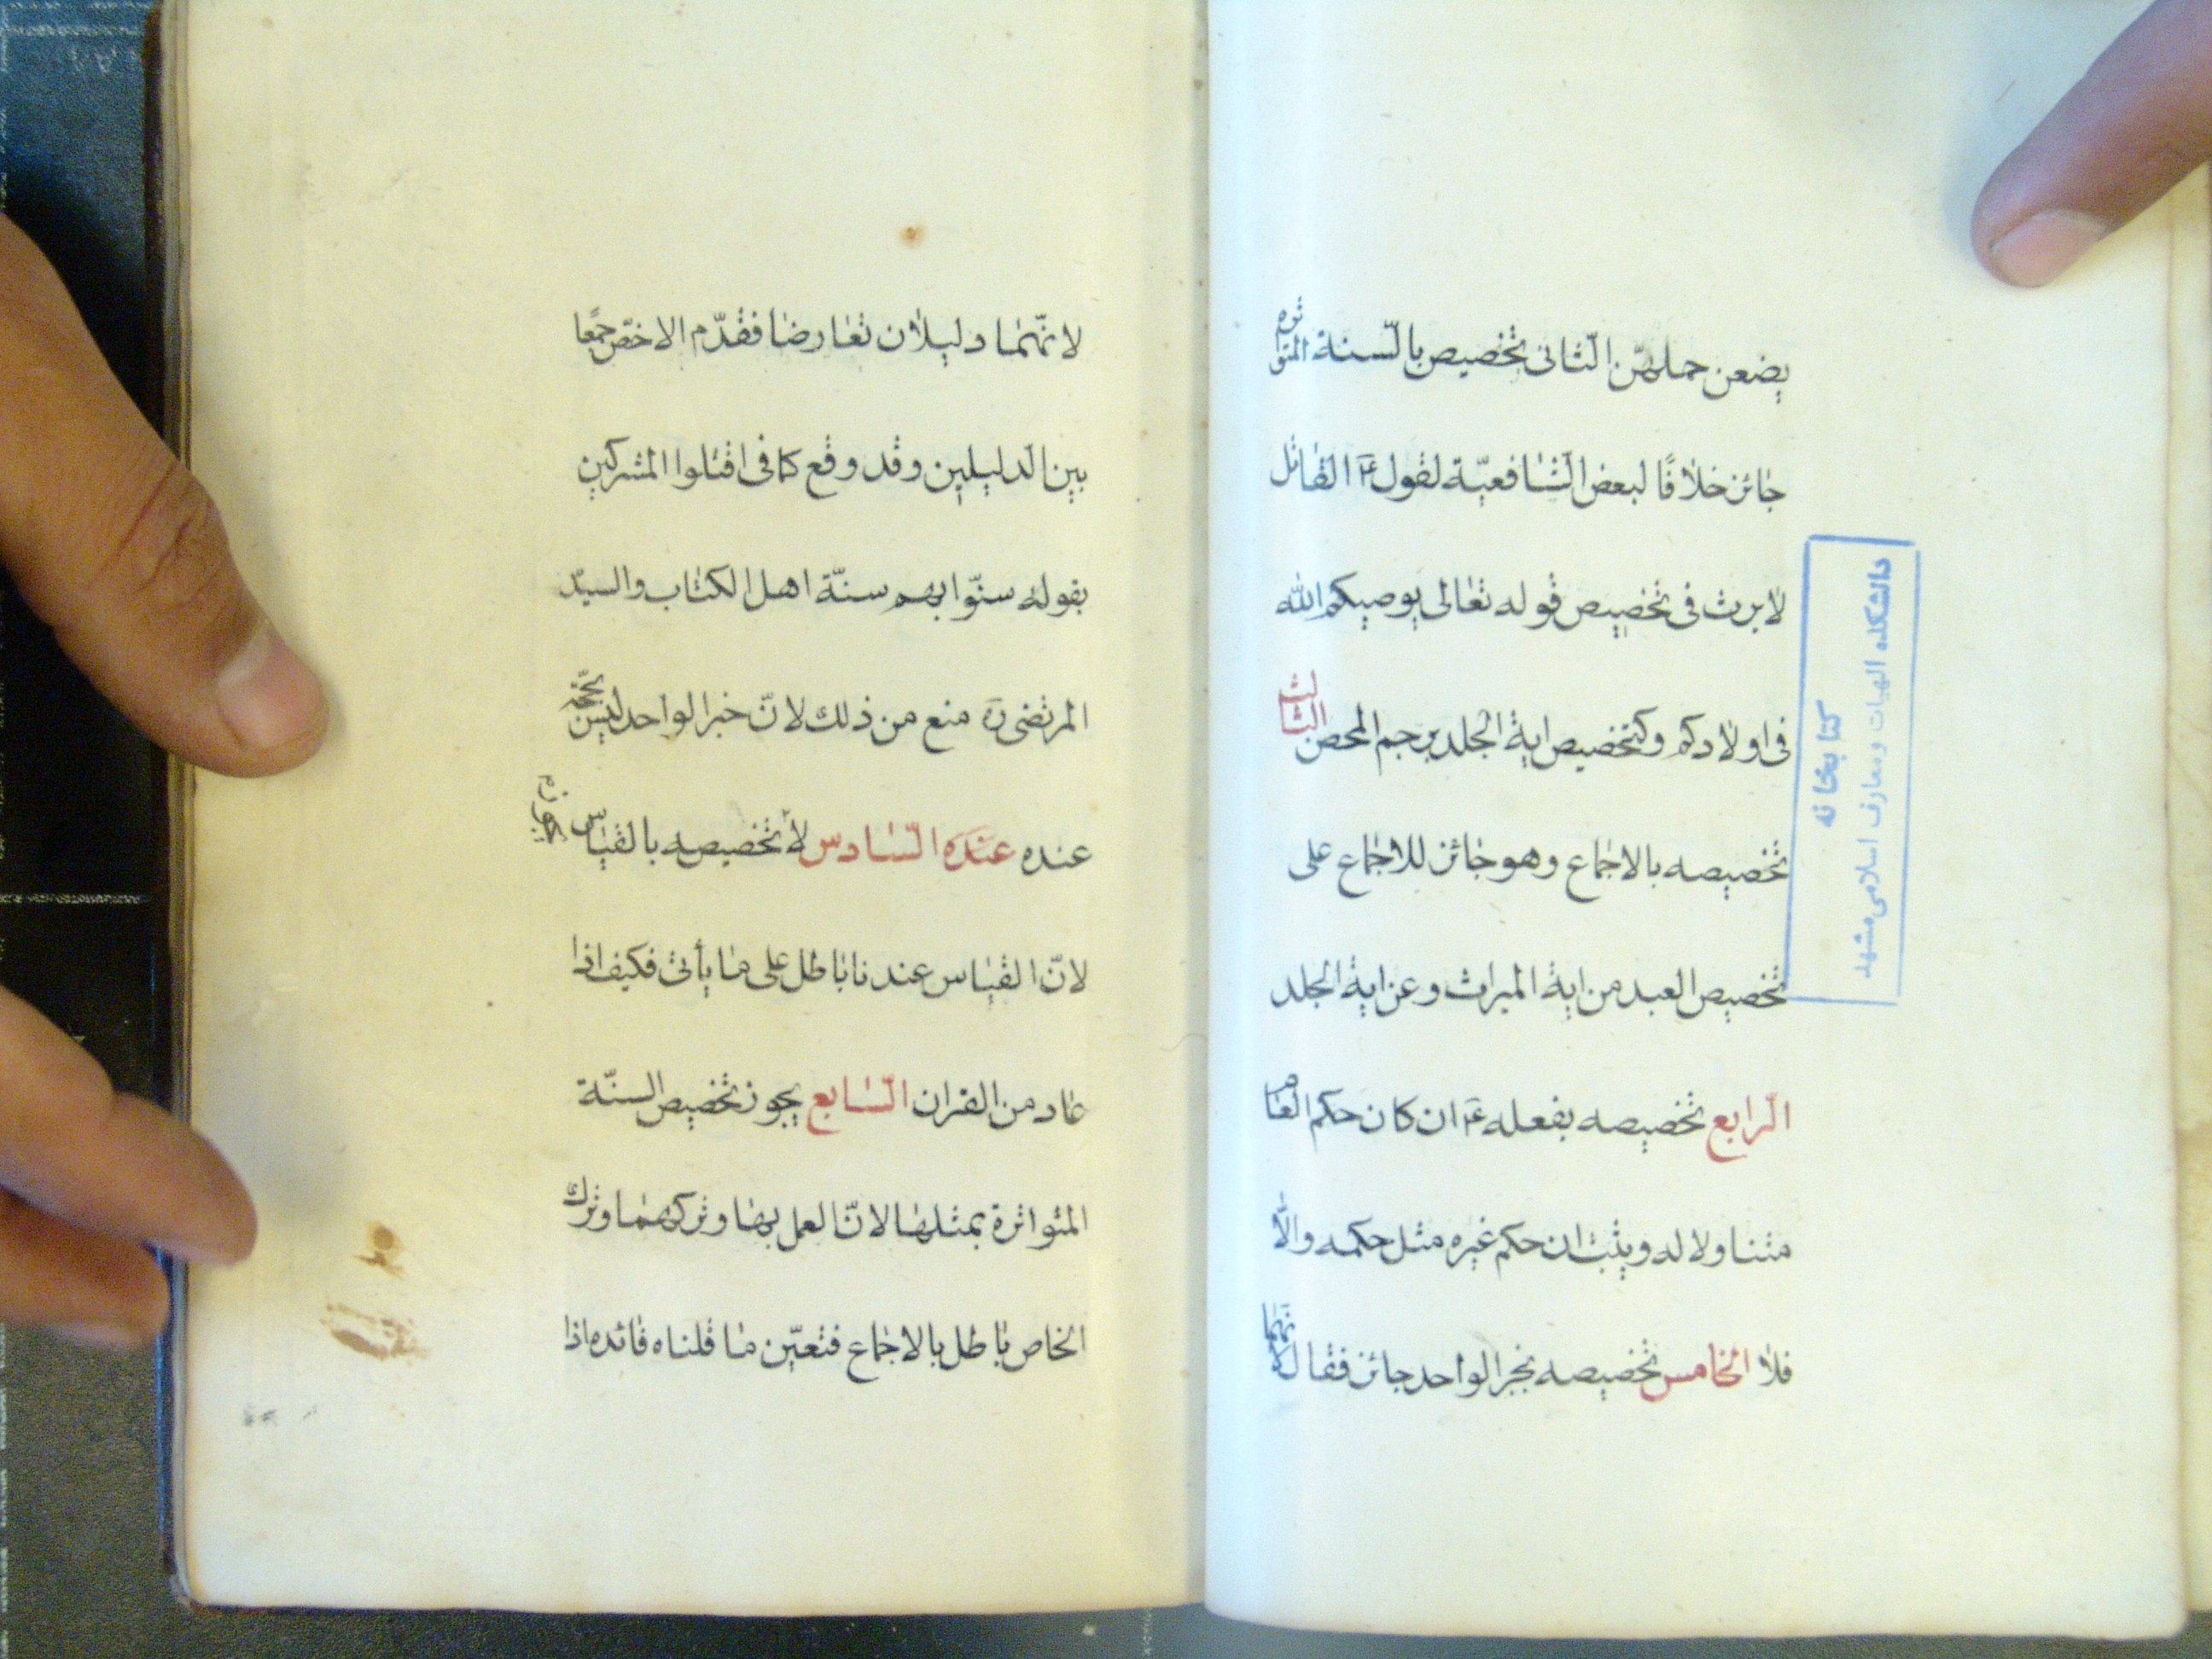 يضعن حملهنّ الثّانى تخصيص بالسّنة المتواترة
جائز خلافًا لبعض الشّافعيّة لقول ع القاتل
لا يرث فى تخصيص قوله تعالى يوصيكم الله
فى اولادكم وكتخصيص اية الجلد برجم المحصن الثالث
تخصيصه بالاجماع وهو جائز للاجماع على
تخصيص العبد من اية الميراث وعن اية الجلد
الرّابع تخصيصه بفعله ع ان كان حكم العام
متناولا له ويثبت ان حكم غيره مثل حكمه والّا
فلا الخامس تخصيصه بخبر الواحد جائز فقالَ
كتابخانه
دانشكده الهيات ومعارف اسلامى مشهد
لانّهما دليلان تعارضا فقدّم الاخصّ جمعًا
بين الدليلين وقد وقع كما فى اقتلوا المشركين
بقوله سنّوا بهم سنّة اهل الكتاب والسيّد
المرتضى ره منع من ذلك لانّ خبر الواحد ليس بحجّة
عنده عنده السّادس لا تخصيصه بالقياس
لانّ القياس عندنا باطل على ما يأتى فكيف اذا
عاد من القران السّابع يجوز تخصيص السنّة
المتواترة بمثلها لانّ العمل بها وتركهما وترك
الخاص باطل بالاجماع فتعيّن ما قلناه فائده اذا